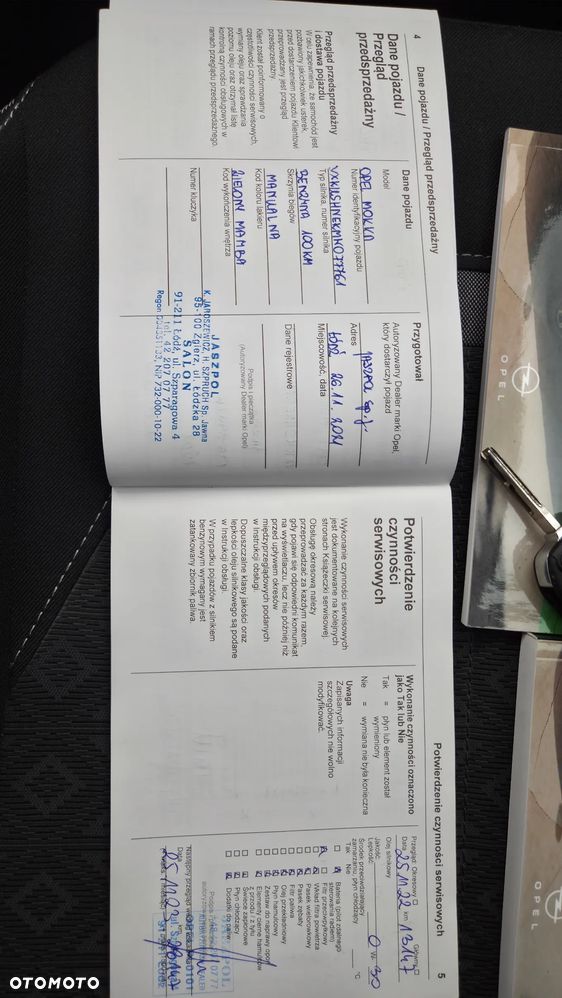 4
Dane pojazdu / Przegląd przedsprzedażny
Dane pojazdu /
Przegląd
przedsprzedażny
Przegląd przedsprzedażny
i dostawa pojazdu
W celu zapewnienia, że samochód jest
pozbawiony jakichkolwiek usterek,
przed dostarczeniem pojazdu Klientowi
przeprowadzany jest przegląd
przedsprzedażny.
Klient został poinformowany o
częstotliwości czynności serwisowych,
wymiany oleju oraz sprawdzania
poziomu oleju oraz otrzymał listę
kontrolną czynności obsługowych w
ramach przeglądu przedsprzedażnego.
Dane pojazdu
Model
OPEL MOKKA
Numer identyfikacyjny pojazdu
Typ silnika, numer silnika
BENZYNA 100KM
Skrzynia biegów
MANUALNA
Kod koloru lakieru
ZIELONY MAMBA
Kod wykończenia wnętrza
Numer kluczyka
Przygotował
Autoryzowany Dealer marki Opel,
który dostarczył pojazd
JASZPOL Sp. J.
Adres
ŁÓDŹ 26.11.2021
Miejscowość, data
Dane rejestrowe
Podpis i pieczątka
(Autoryzowany Dealer marki Opel)
JASZPOL
K. JAROSZEWICZ, H. SZPRUCH Sp. Jawna
95-100 Zgierz, ul. Łódzka 28
SALON
91-211 Łódź, ul. Szparagowa 4
tel. 42 207 07 77
Potwierdzenie czynności serwisowych
5
Potwierdzenie
czynności
serwisowych
Wykonanie czynności serwisowych
jest dokumentowane na kolejnych
stronach Książeczki serwisowej.
Obsługę okresową należy
przeprowadzać za każdym razem,
gdy pojawi się odpowiedni komunikat
na wyświetlaczu, lecz nie później niż
przed upływem okresów
międzyprzeglądowych podanych
w Instrukcji obsługi.
Dopuszczalne klasy jakości oraz
lepkości oleju silnikowego są podane
w Instrukcji obsługi.
W przypadku pojazdów z silnikiem
benzynowym wymagany jest
zatankowany zbiornik paliwa.
Wykonanie czynności oznaczono
jako Tak lub Nie
Tak = płyn lub element został
wymieniony
Nie = wymiana nie była konieczna
Uwaga
Zapisanych informacji
szczegółowych nie wolno
modyfikować.
Przegląd Okresowy Główny
Data 25.11.22 km 13147
Olej silnikowy
Jakość:
Lepkość: 0 W 30
Środek przeciwdziałający
zamarzaniu, płyn chłodzący °C
Tak Nie
Bateria (pilot zdalnego
sterowania radiem)
Filtr przeciwpyłkowy
Wkład filtra powietrza
Pasek wielorowkowy
Pasek zębaty
Filtr paliwa
Olej przekładniowy
Płyn hamulcowy
Zestaw do naprawy opon
Elementy cierne hamulców
z przodu / z tyłu
Świece zapłonowe
Płyn chłodzący
Dodatki do paliw
Następny przegląd
25.11.23
OPEL
OPEL
OTOMOTO